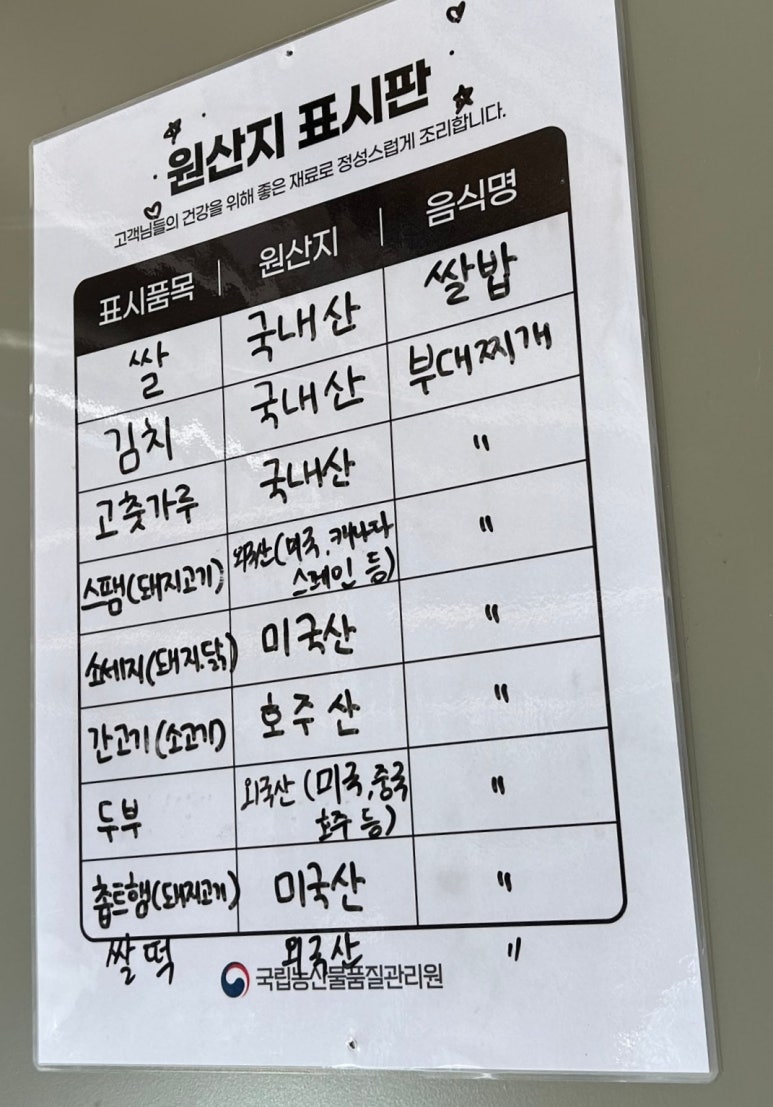 원산지 표시판
고객님들의 건강을 위해 좋은 재료로 정성스럽게 조리합니다.
표시품목 | 원산지 | 음식명
쌀 국내산 쌀밥
김치 국내산 부대찌개
고춧가루 국내산 〃
스팸(돼지고기) 외국산(미국.캐나다
스페인 등) 〃
소세지(돼지.닭) 미국산 〃
간고기(소고기) 호주산 〃
두부 외국산(미국,중국
호주 등) 〃
춉트햄(돼지고기) 미국산 〃
쌀떡 외국산 〃
국립농산물품질관리원